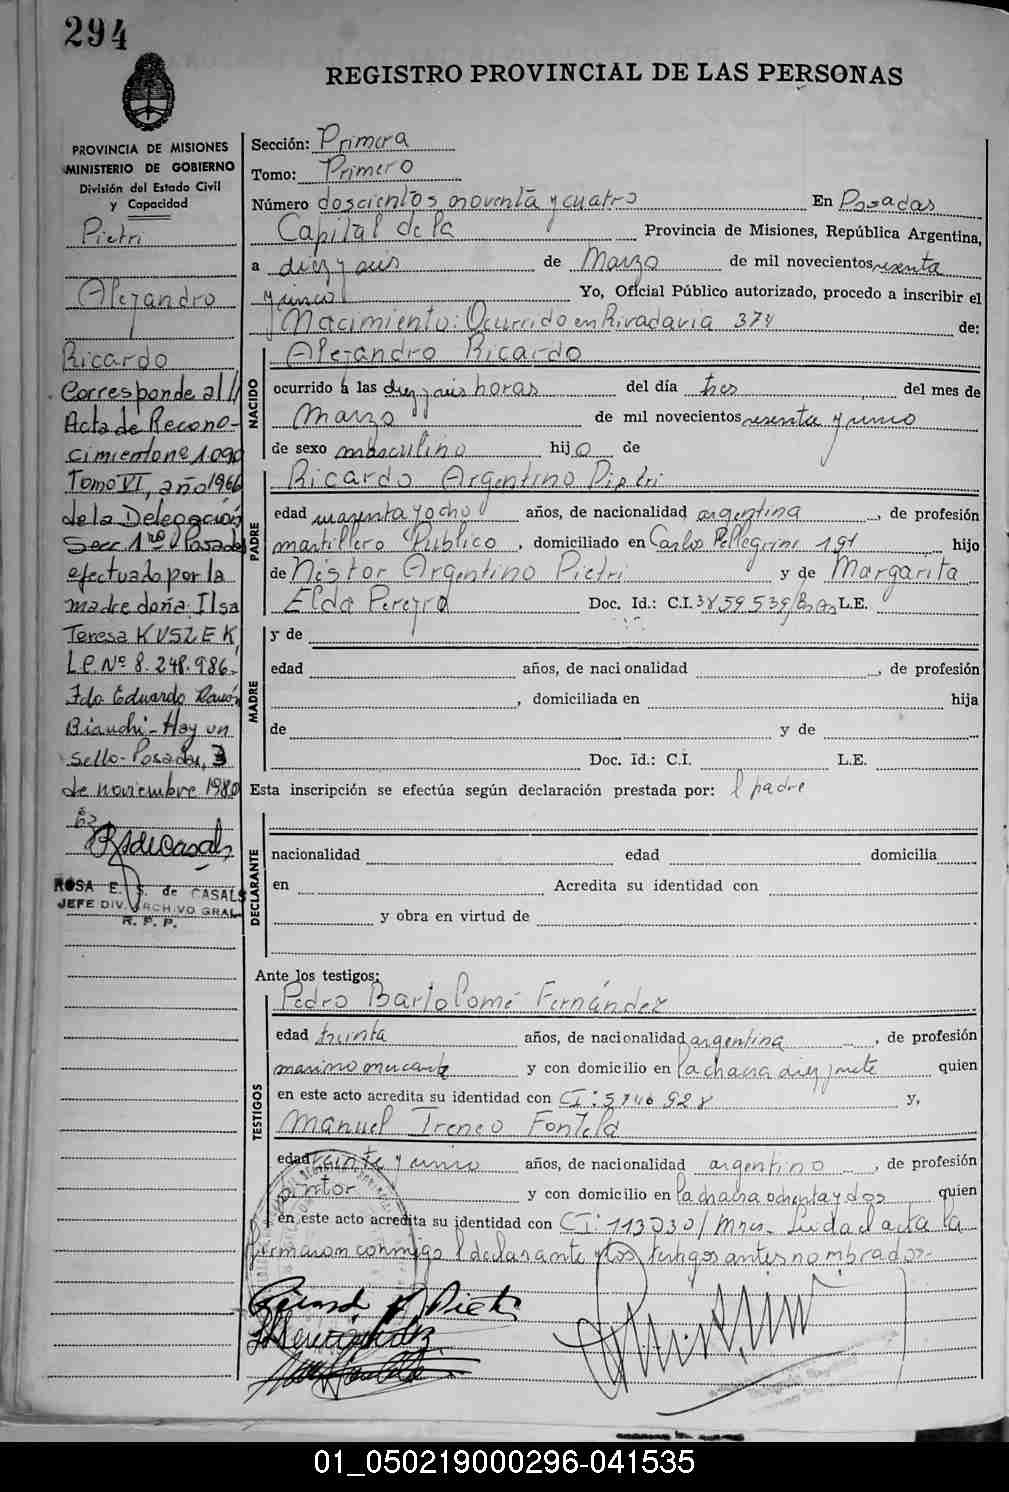 294
REGISTRO PROVINCIAL DE LAS PERSONAS
PROVINCIA DE MISIONES
MINISTERIO DE GOBIERNO
División del Estado Civil
y Capacidad
Pietri
Alejandro
Ricardo
Corresponde al
Acta de Recono-
cimiento nº 1090
Tomo VI, año 1966
de la Delegación
Secc 1ra Posadas
efectuado por la
madre doña: Ilsa
Teresa KUSZEK,
L.C. Nº 8.248.986.-
Fdo Eduardo Ramón
Bianchi - Hay un
sello - Posadas, 3
de noviembre 1980
ROSA E. S. de CASALS
JEFE DIV. ARCHIVO GRAL.
R. P. P.
Sección: Primera
Tomo: Primero
Número doscientos noventa y cuatro En Posadas
Capital de la Provincia de Misiones, República Argentina,
a diez y seis de Marzo de mil novecientos sesenta
y cinco Yo, Oficial Público autorizado, procedo a inscribir el
Nacimiento: Ocurrido en Rivadavia 374 de:
NACIDO
Alejandro Ricardo
ocurrido á las diez y seis horas del día tres del mes de
Marzo de mil novecientos sesenta y uno
de sexo masculino hijo de
PADRE
Ricardo Argentino Pietri
edad cuarenta y ocho años, de nacionalidad argentina, de profesión
martillero Público, domiciliado en Carlos Pellegrini 191 hijo
de Néstor Argentino Pietri y de Margarita
Elda Pereyra Doc. Id.: C.I. 3859539/Bs As L.E.
MADRE
y de
edad años, de nacionalidad, de profesión
, domiciliada en hija
de y de
Doc. Id.: C.I. L.E.
Esta inscripción se efectúa según declaración prestada por: el padre
DECLARANTE
nacionalidad edad domicilia
en Acredita su identidad con
y obra en virtud de
Ante los testigos:
TESTIGOS
Pedro Bartolomé Fernández
edad treinta años, de nacionalidad argentina, de profesión
marino mercante y con domicilio en la chacra diez y siete quien
en este acto acredita su identidad con CI: 5746928 y,
Manuel Ireneo Fontela
edad veinte y cinco años, de nacionalidad argentino, de profesión
pintor y con domicilio en la chacra ochenta y dos quien
en este acto acredita su identidad con CI: 113030/Mnes. Leida el acta la
firmaron conmigo el declarante y los testigos antes nombrados.-
01_050219000296-041535